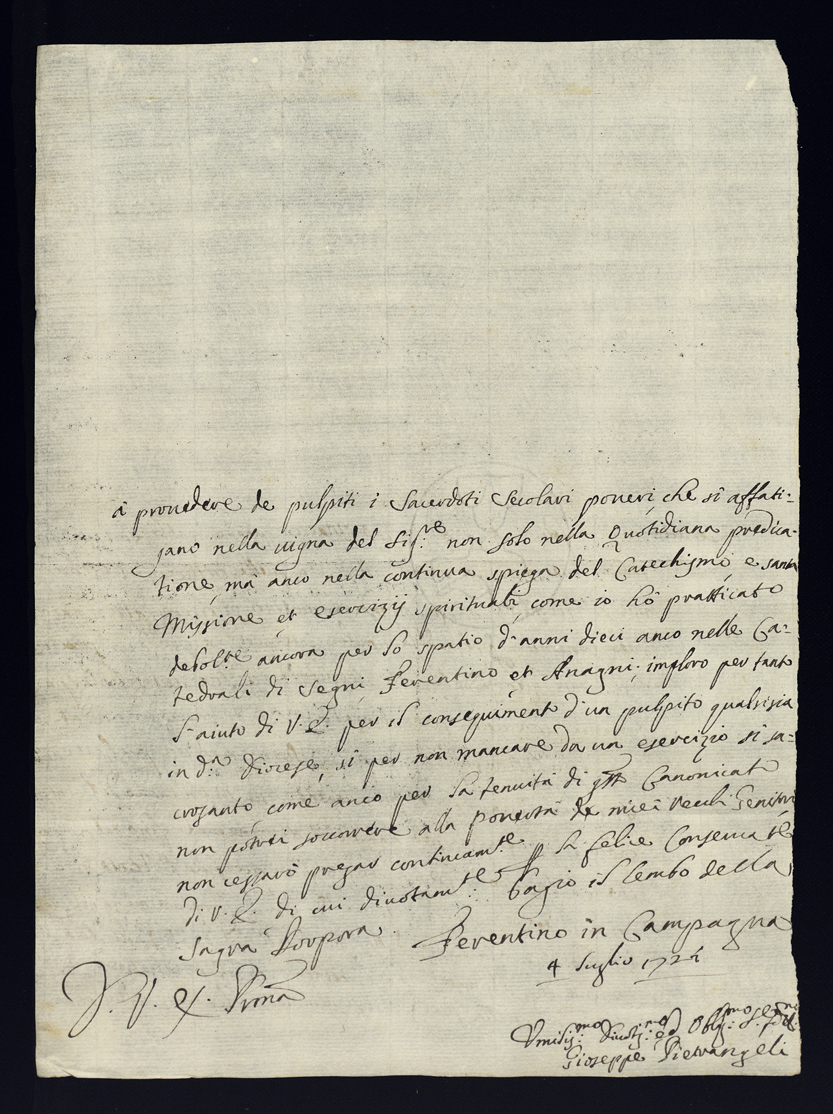 à provedere de pulpiti i Sacerdoti Secolari poveri, che si affati:
gano nella vigna del Sig.re non solo nella Quotidiana predica-
tione, mà anco nella continua spiega del Catechismo, e santa
Missione et esercizij spirituali, come io hò pratticato
debolte ancora per lo spatio d'anni dieci anco nelle Ca-
tedrali di Segni, Ferentino et Anagni; imploro per tanto
l'aiuto di V. E. per il conseguimento d'un pulpito qualsisia
in d.a Diocese, sì per non mancare da un esercizio sì sa-
crosanto, come anco per la tenuità di Canonicato
non potrei soccorrere alla povertà de miei Vecchi Genitori
non cessarò pregar continuam.te p la felice Conserva.ne
di V. E. di cui divotam.te bagio il lembo della
Sagra Porpora. Ferentino in Campagna
4 Luglio
D. V. E. Pma
Umiliss.mo Divotiss.mo ed Oblig.mo
Gioseppe Pietrangeli